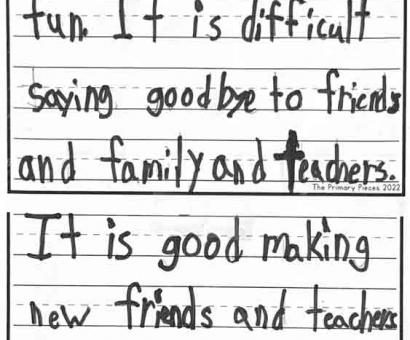 fun. It is difficult
saying goodbye to friends
and family and teachers.
The Primary Pieces 2022
It is good making
new friends and teachers